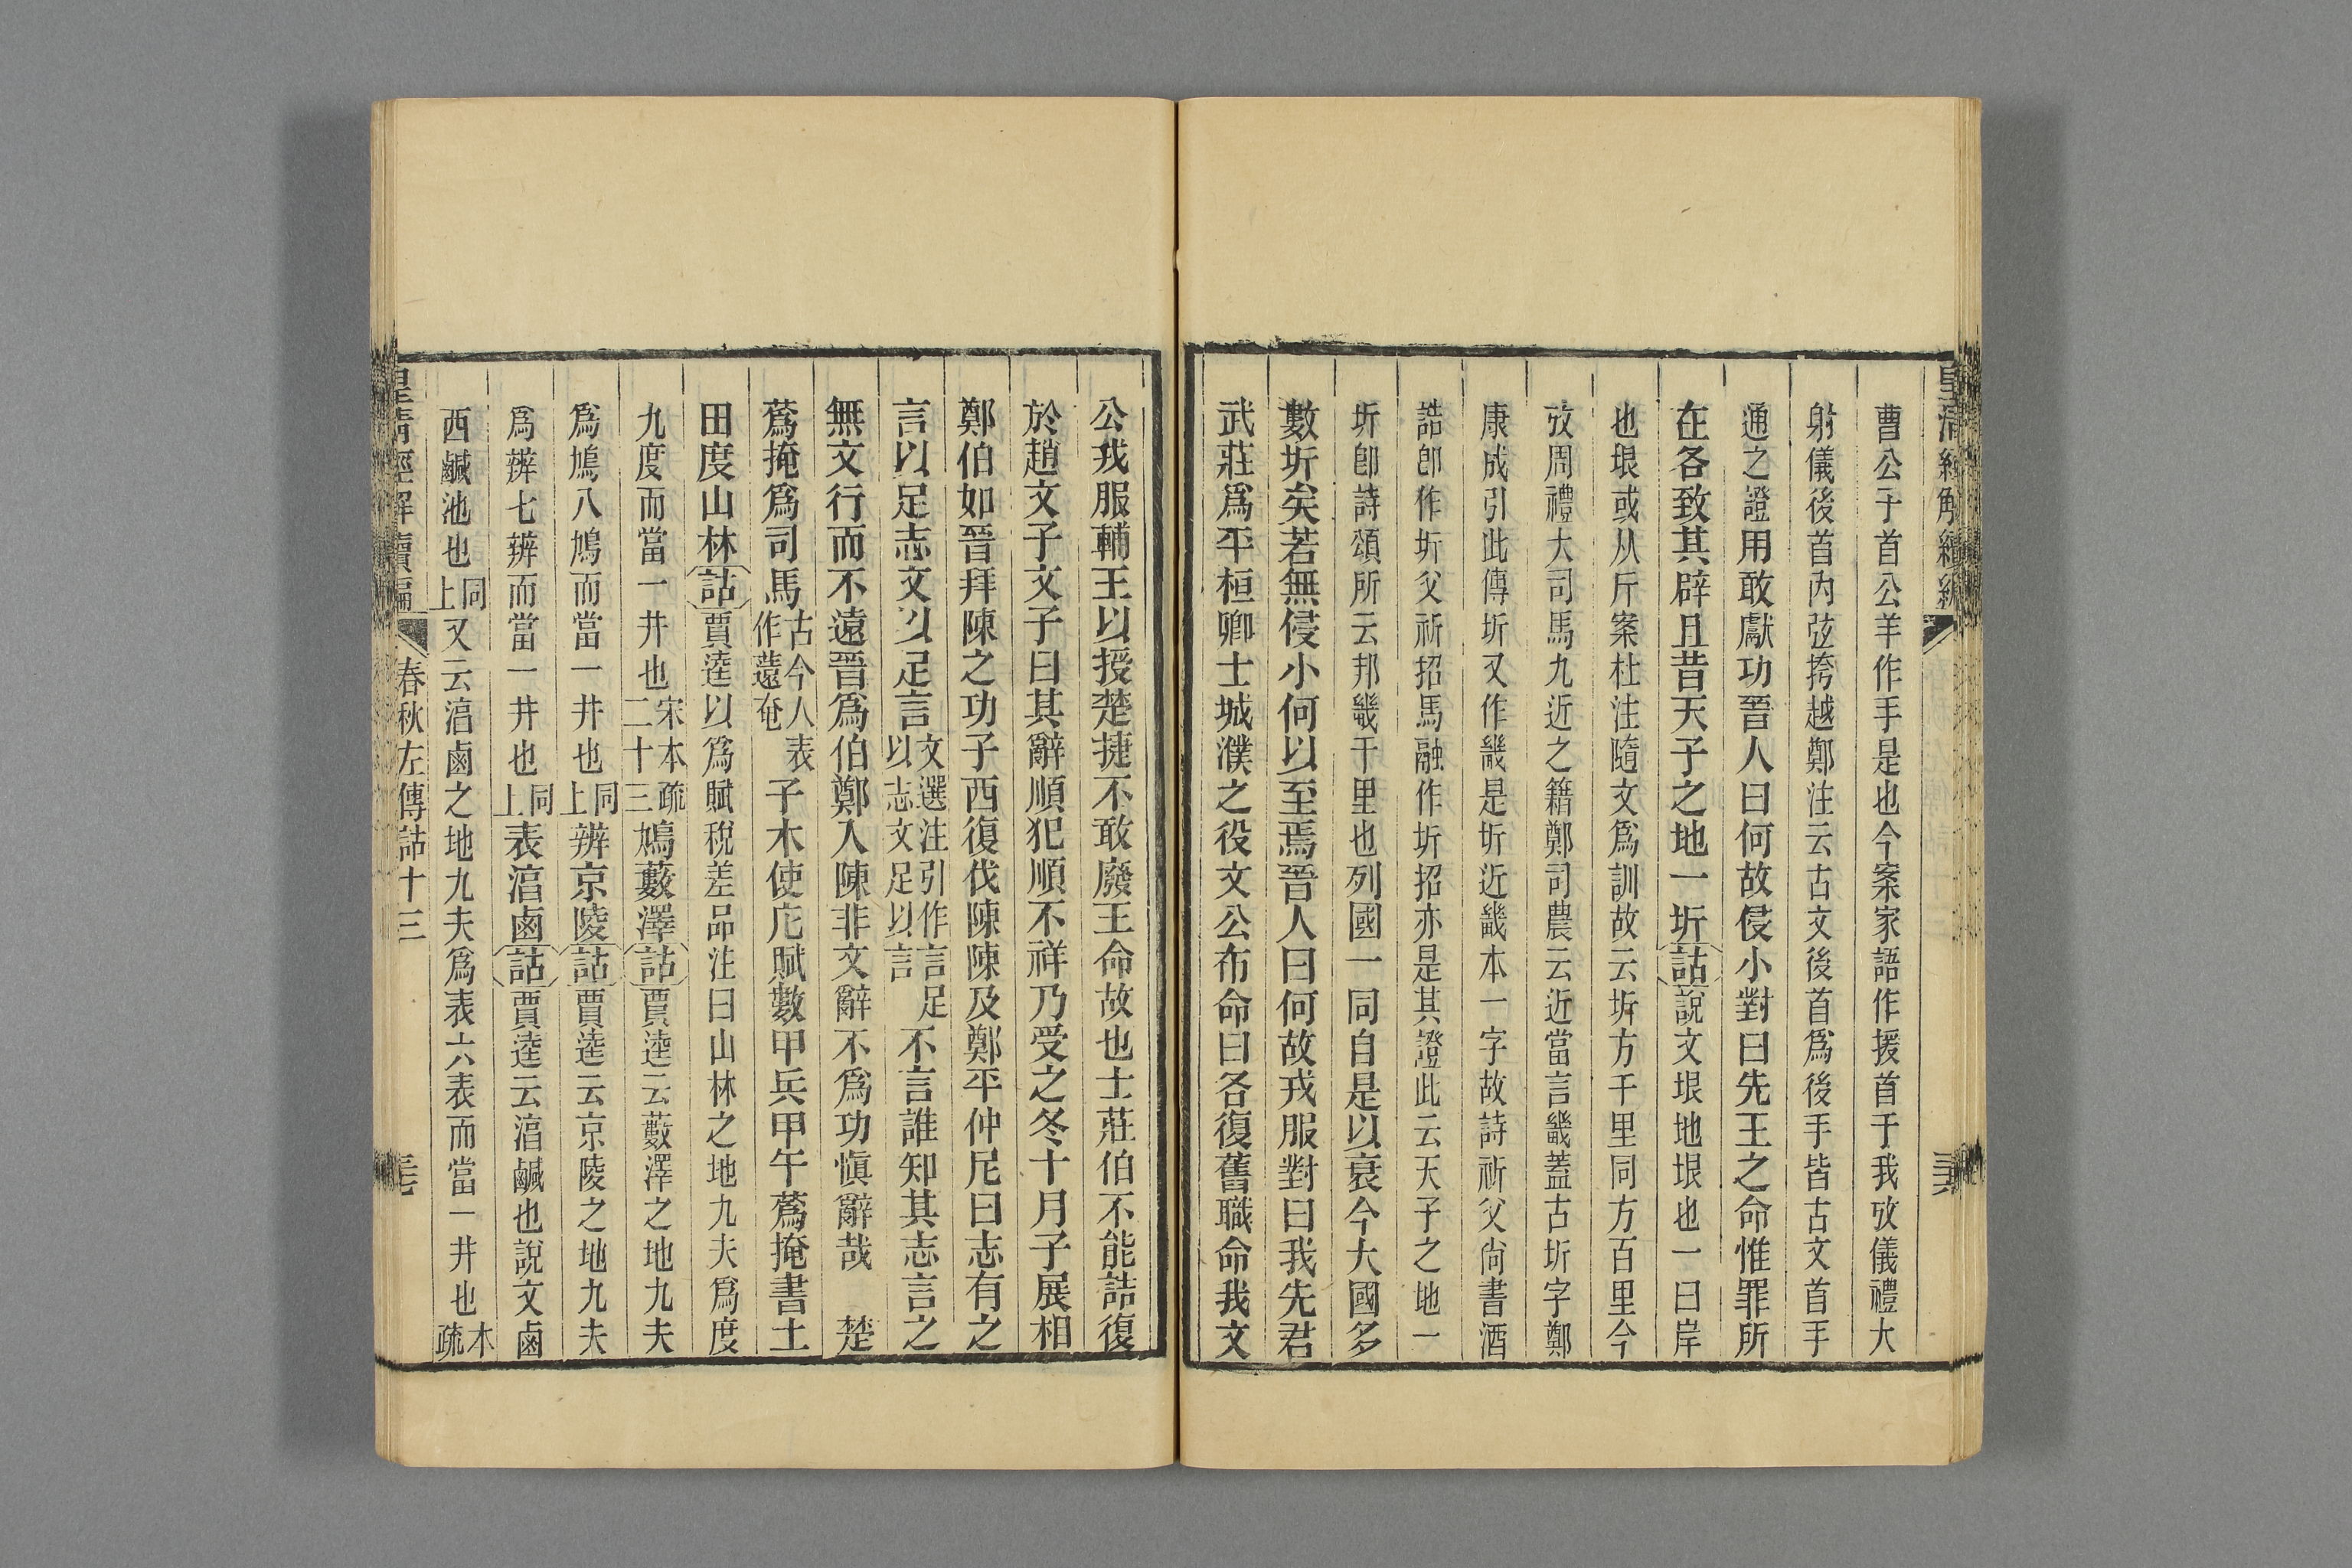 皇清經解續編
三六
曹公子首公羊作手是也今案家語作援首于我攷儀禮大
射儀後首內弦挎越鄭注云古文後首爲後手皆古文首手
通之證用敢獻功晉人曰何故侵小對曰先王之命惟罪所
在各致其辟且昔天子之地一圻詁說文垠地垠也一曰岸
也垠或从斤案杜注隨文爲訓故云圻方千里同方百里今
攷周禮大司馬九近之籍鄭司農云近當言畿蓋古圻字鄭
康成引此傳圻又作畿是圻近畿本一字故詩祈父尙書酒
誥卽作圻父祈招馬融作圻招亦是其證此云天子之地一
圻卽詩頌所云邦畿千里也列國一同自是以衰今大國多
數圻矣若無侵小何以至焉晉人曰何故戎服對曰我先君
武莊爲平桓卿士城濮之役文公布命曰各復舊職命我文
公戎服輔王以授楚捷不敢廢王命故也士莊伯不能詰復
於趙文子文子曰其辭順犯順不祥乃受之冬十月子展相
鄭伯如晉拜陳之功子西復伐陳陳及鄭平仲尼曰志有之
言以足志文以足言文選注引作言足以志文足以言不言誰知其志言之
無文行而不遠晉爲伯鄭入陳非文辭不爲功愼辭哉　楚
蔿掩爲司馬古今人表作薳奄子木使庀賦數甲兵甲午蔿掩書土
田度山林詁賈逵以爲賦稅差品注曰山林之地九夫爲度
九度而當一井也宋本疏二十三鳩藪澤詁賈逵云藪澤之地九夫
爲鳩八鳩而當一井也同上辨京陵詁賈逵云京陵之地九夫
爲辨七辨而當一井也同上表淳鹵詁賈逵云淳鹹也說文鹵
西鹹池也同上又云淳鹵之地九夫爲表六表而當一井也本疏
皇清經解續編
春秋左傳詁十三
三七